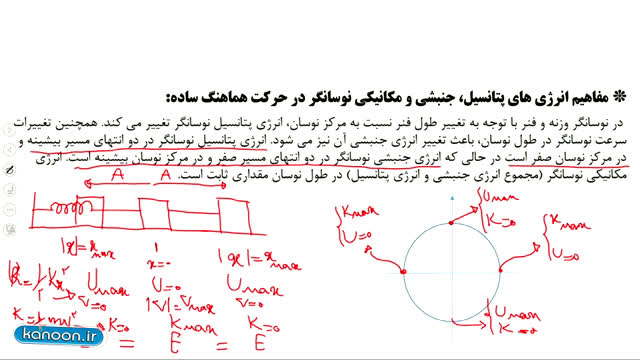 ❊ مفاهیم انرژی های پتانسیل، جنبشی و مکانیکی نوسانگر در حرکت هماهنگ ساده:
در نوسانگر وزنه و فنر با توجه به تغییر طول فنر نسبت به مرکز نوسان، انرژی پتانسیل نوسانگر تغییر می کند. همچنین تغییرات
سرعت نوسانگر در طول نوسان، باعث تغییر انرژی جنبشی آن نیز می شود. انرژی پتانسیل نوسانگر در دو انتهای مسیر بیشینه و
در مرکز نوسان صفر است در حالی که انرژی جنبشی نوسانگر در دو انتهای مسیر صفر و در مرکز نوسان بیشینه است. انرژی
مکانیکی نوسانگر (مجموع انرژی جنبشی و انرژی پتانسیل) در طول نوسان مقداری ثابت است.
A A
|x|=xmax x=0 |x|=xmax
Umax U=0 Umax
v=0 |v|=vmax v=0
K=0 Kmax K=0
= E = E
Umax
K=0
Kmax
U=0
Kmax
U=0
Umax
K=0
kanoon.ir